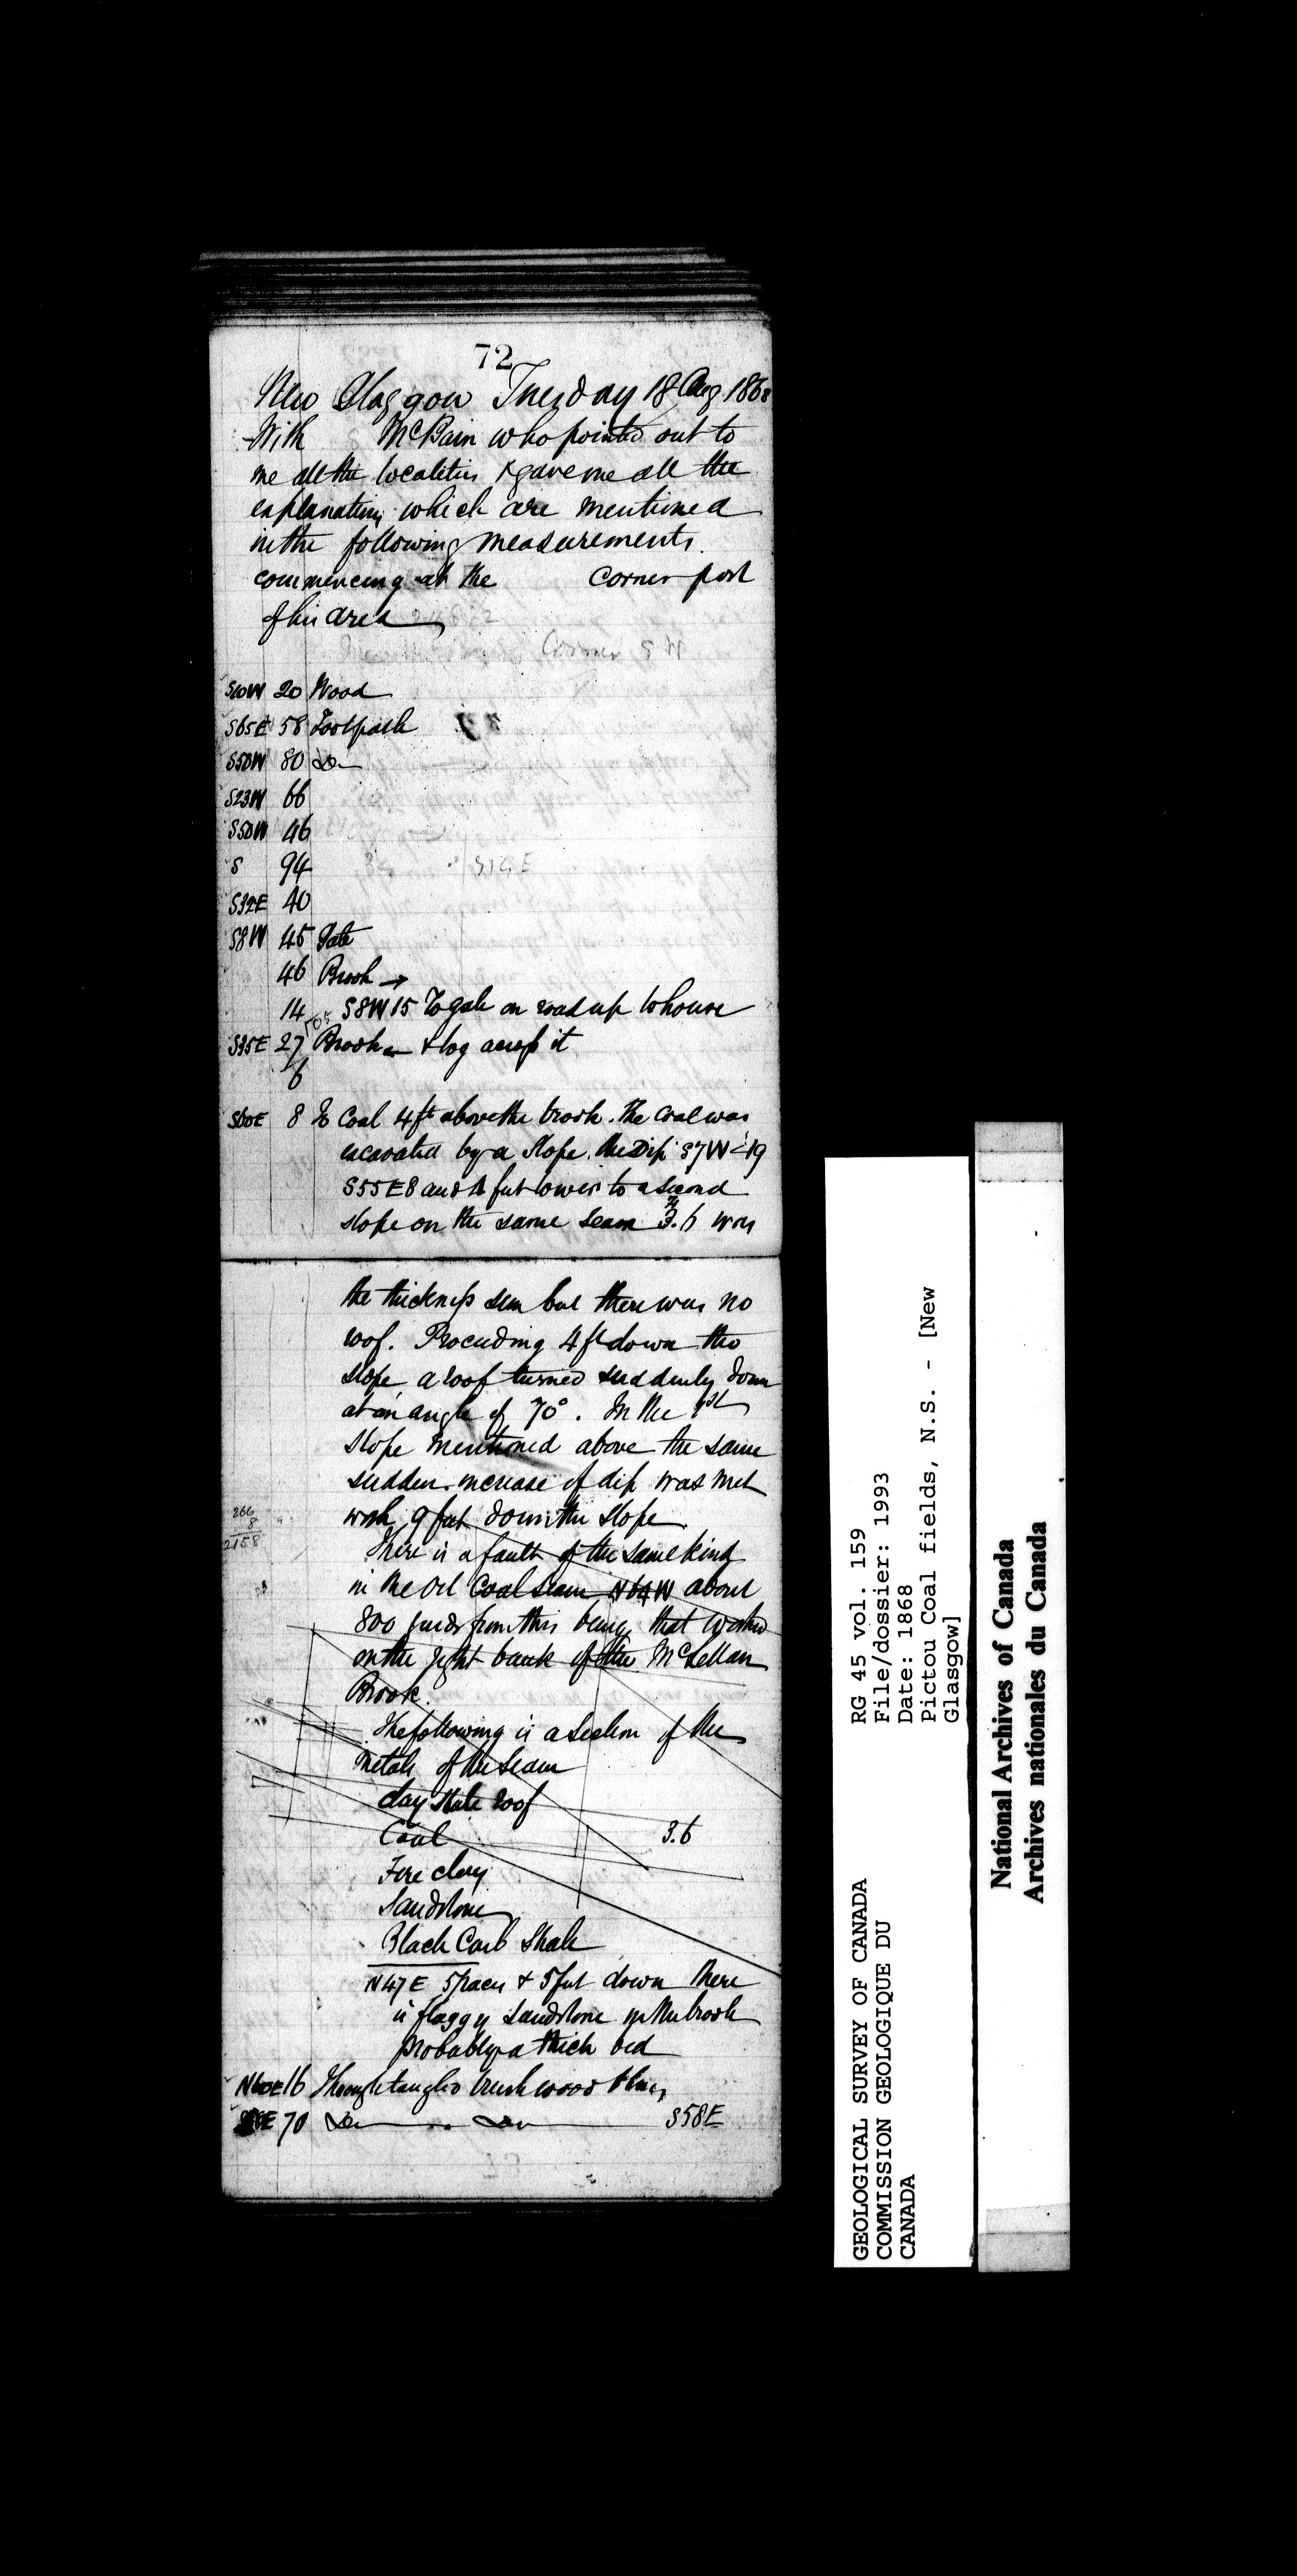 72
New Glasgow Tuesday 18 Aug 1868
With McBain who pointed out to
me all the localities & gave me all the
explanations which are mentioned
in the following measurements.
commencing at the corner post
of his area
Corner S W
S10W 20 Wood
S65E 58 Footpath
S50W 80 Do
S23W 66
S50W 46
S 94
S32E 40
S8W 45 Gate
46 Brook →
14 S8W 15 To gate on road up to house
S35E 27 Brook ← & log across it
6
S60E 8 To Coal 4ft above the brook. The coal was
excavated by a slope. the Dip S7W < 19
S55E 8 and feet lower to a second
slope on the same seam 3.6 was
the thickness seen but there was no
roof. Proceeding 4ft down the
slope, a roof turned suddenly down
at an angle of 70°. In the 1st
slope mentioned above the same
sudden increase of dip was met
with 9 feet down the slope.
266
8
2158
There is a fault of the same kind
in the Oil Coal seam N64W about
800 yards from this being that worked
on the right bank of the McLellan
Brook.
The following is a section of the
metals of the seam
Clay shale roof
Coal 3.6
Fire clay
Sandstone
Black Carb Shale
N47E 5 paces & 5 feet down there
is flaggy sandstone in the brook
probably a thick bed
N60E 16 Through tangled brushwood
70 Do Do S58E
RG 45 vol. 159
File/dossier: 1993
Date: 1868
Pictou Coal fields, N.S. - [New
Glasgow]
GEOLOGICAL SURVEY OF CANADA
COMMISSION GEOLOGIQUE DU
CANADA
National Archives of Canada
Archives nationales du Canada